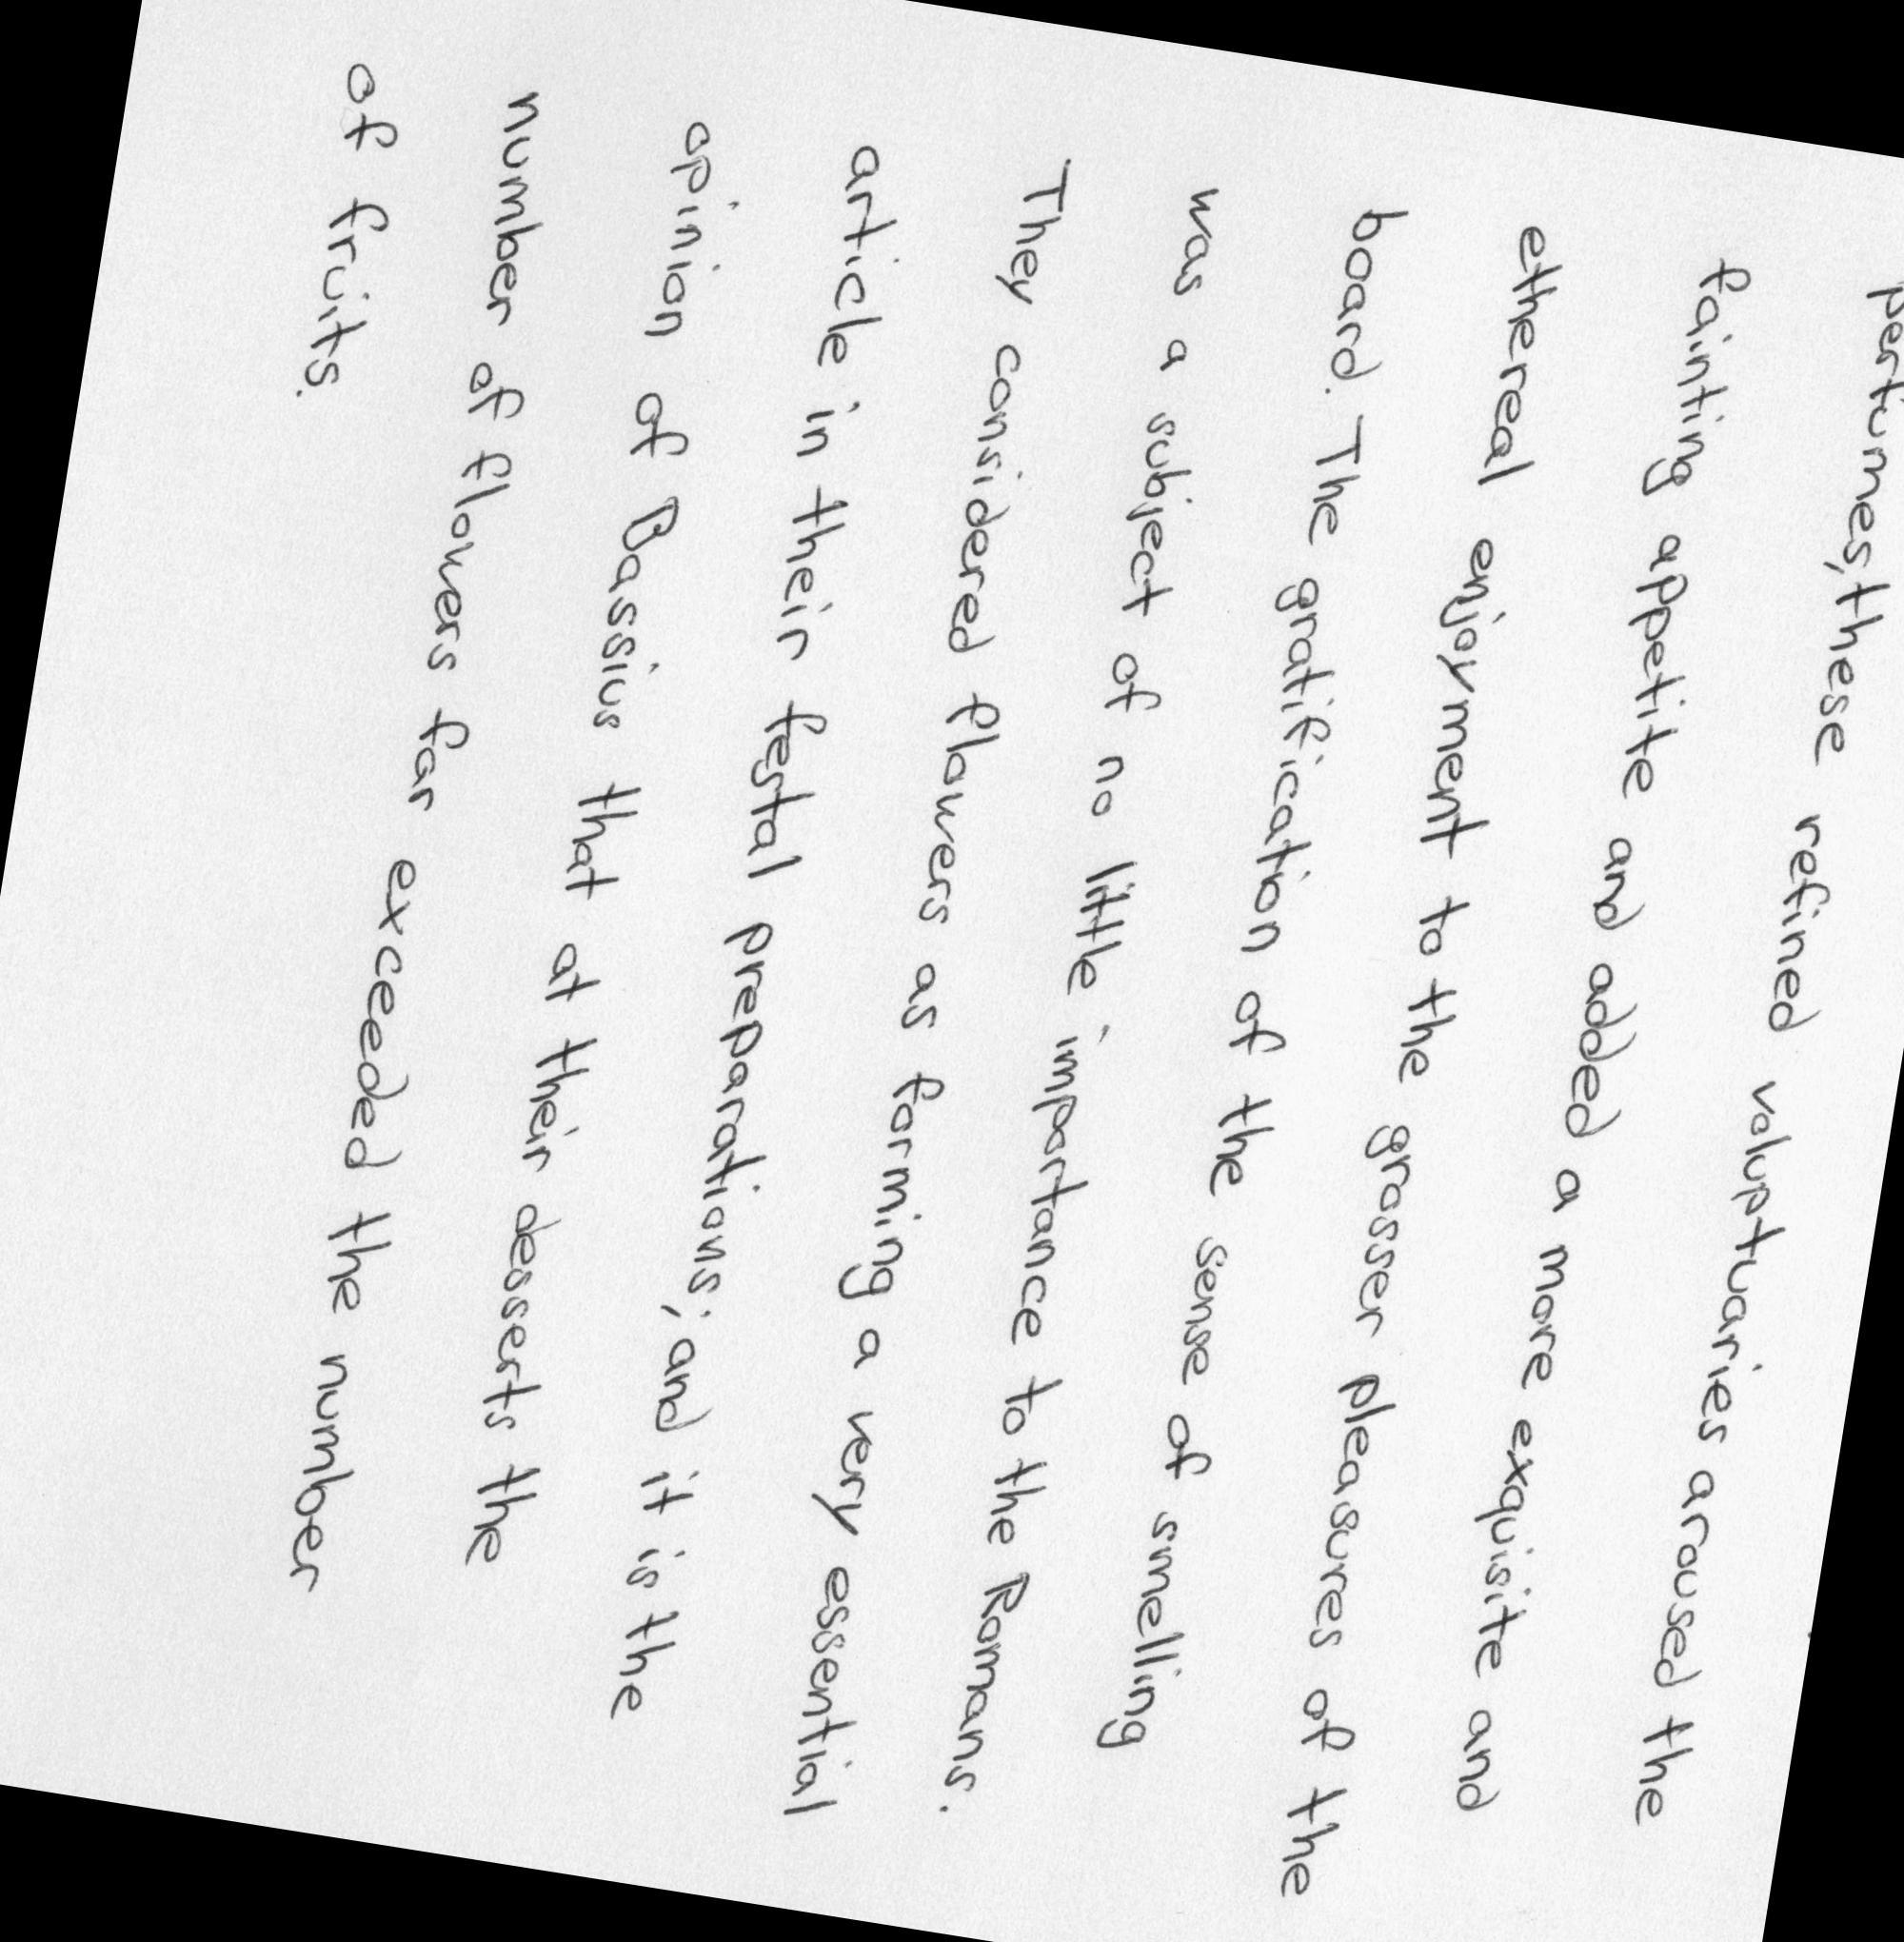 perfumes, these refined voluptuaries aroused the
fainting appetite and added a more exquisite and
ethereal enjoyment to the grosser pleasures of the
board. The gratification of the sense of smelling
was a subject of no little importance to the Romans.
They considered flowers as forming a very essential
article in their festal preparations; and it is the
opinion of Bassius that at their desserts the
number of flowers far exceeded the number
of fruits.